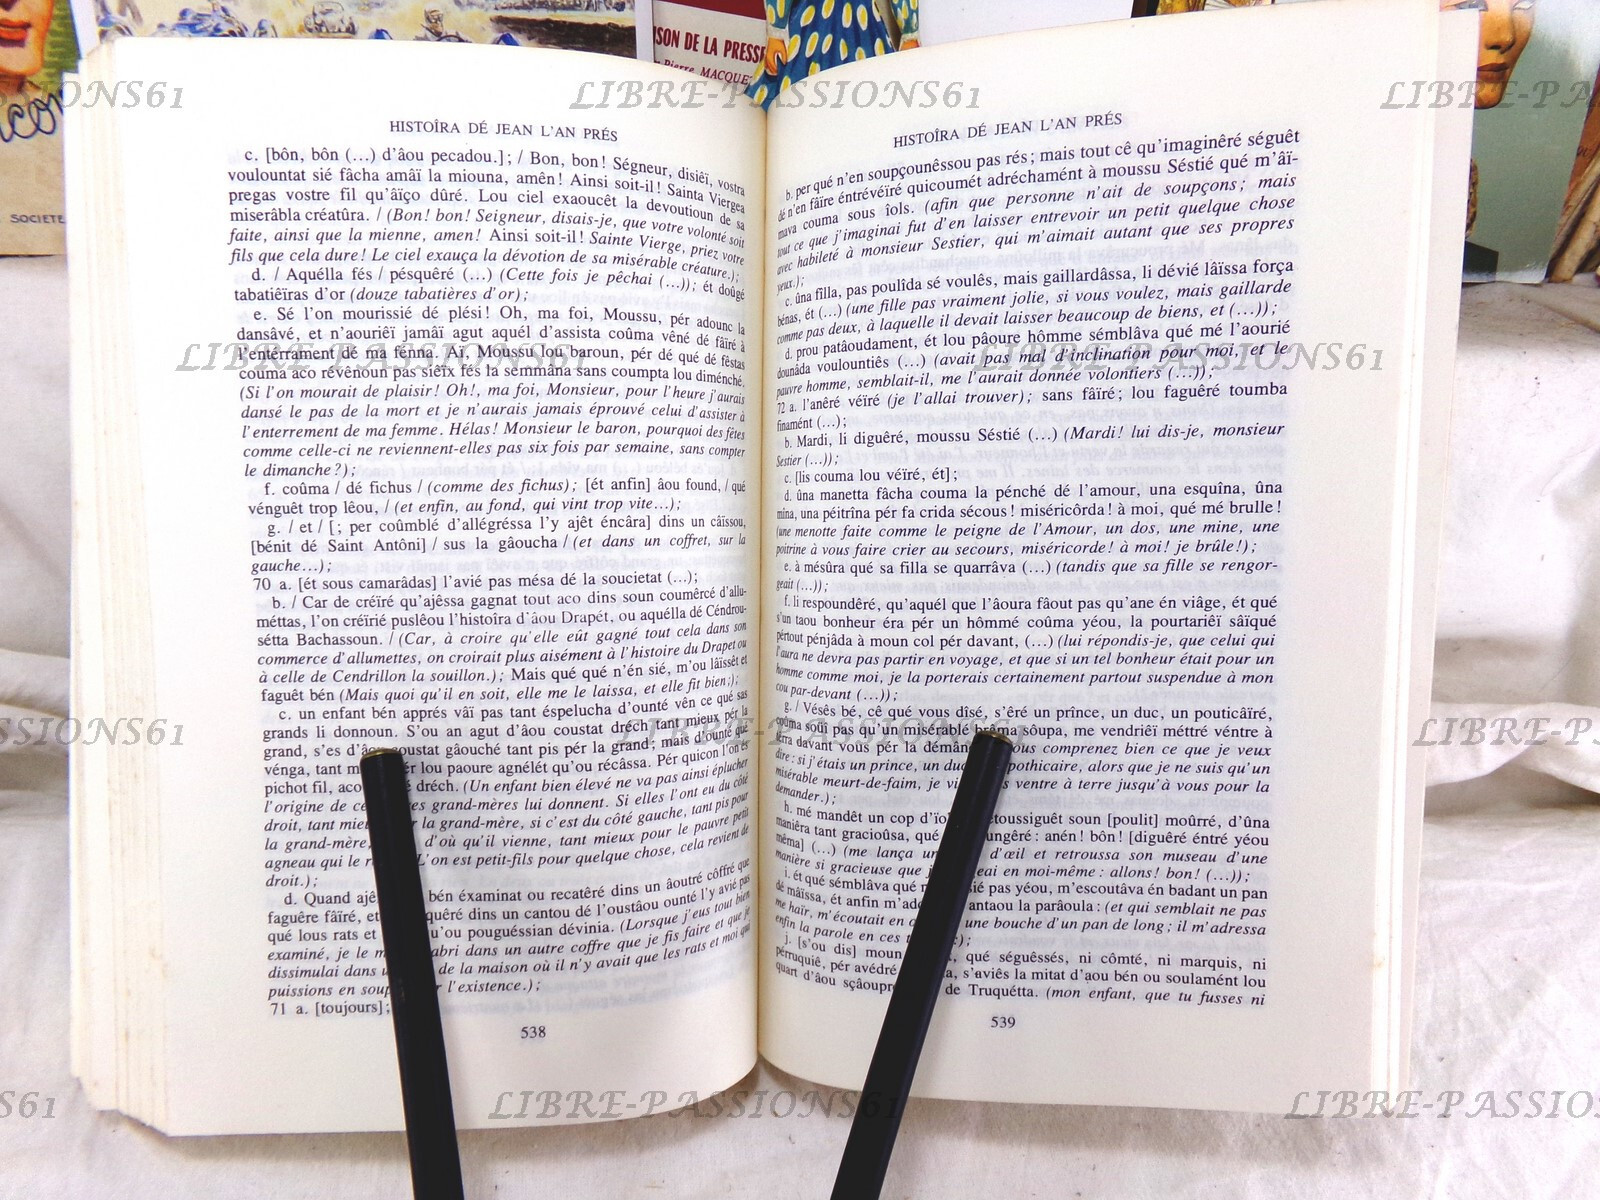 SON DE LA PRESSE
Pierre MACQUE
SOCIETE
LIBRE-PASSIONS61
HISTOÎRA DÉ JEAN L'AN PRÉS
c. [bôn, bôn (...) d'âou pecadou.] ; / Bon, bon ! Ségneur, disièï, vostra
voulountat sié fâcha amâï la miouna, amên ! Ainsi soit-il ! Sainta Viergea
pregas vostre fil qu'âïço dûré. Lou ciel exaoucêt la devoutioun de sa
miserâbla créatûra. / (Bon ! bon ! Seigneur, disais-je, que votre volonté soit
faite, ainsi que la mienne, amen ! Ainsi soit-il ! Sainte Vierge, priez votre
fils que cela dure ! Le ciel exauça la dévotion de sa misérable créature.) ;
d. / Aquélla fés / pésquêré (...) (Cette fois je pêchai (...)) ; ét doûgé
tabatiêïras d'or (douze tabatières d'or) ;
e. Sé l'on mourissié dé plési ! Oh, ma foi, Moussu, pér adounc la
dansâvé, et n'aouriêï jamâï agut aquél d'assista coûma vêné dé fâïré à
l'enterrament dé ma fénna. Aï, Moussu lou baroun, pér dé qué dé fêstas
couma aco révênoun pas sièïx fés la semmâna sans coumpta lou diménché.
(Si l'on mourait de plaisir ! Oh !, ma foi, Monsieur, pour l'heure j'aurais
dansé le pas de la mort et je n'aurais jamais éprouvé celui d'assister à
l'enterrement de ma femme. Hélas ! Monsieur le baron, pourquoi des fêtes
comme celle-ci ne reviennent-elles pas six fois par semaine, sans compter
le dimanche ?) ;
f. coûma / dé fichus / (comme des fichus) ; [ét anfin] âou found, / qué
vénguêt trop lêou, / (et enfin, au fond, qui vint trop vite...) ;
g. / et / [ ; per coûmblé d'allégréssa l'y ajêt éncâra] dins un câïssou,
[bénit dé Saint Antôni] / sus la gâoucha / (et dans un coffret, sur la
gauche...) ;
70 a. [ét sous camarâdas] l'avié pas mésa dé la soucietat (...) ;
b. / Car de créïré qu'ajêssa gagnat tout aco dins soun coumêrcé d'allu-
méttas, l'on créirié puslêou l'histoîra d'âou Drapét, ou aquélla dé Céndrou-
sétta Bachassoun. / (Car, à croire qu'elle eût gagné tout cela dans son
commerce d'allumettes, on croirait plus aisément à l'histoire du Drapet ou
à celle de Cendrillon la souillon.) ; Mais qué qué n'én sié, m'ou lâïssêt et
faguêt bén (Mais quoi qu'il en soit, elle me le laissa, et elle fit bien ;) ;
c. un enfant bén apprés vâï pas tant éspelucha d'ounté vên ce qué sas
grands li donnoun. S'ou an agut d'âou coustat dréch tant mieux pér la
grand, s'es d'âou coustat gâouché tant pis pér la grand ; mais d'ounté qué
vénga, tant m pér lou paoure agnélét qu'ou récâssa. Pér quicon l'on és
pichot fil, aco dréch. (Un enfant bien élevé ne va pas ainsi éplucher
l'origine de ce es grand-mères lui donnent. Si elles l'ont eu du côté
droit, tant mie r la grand-mère, si c'est du côté gauche, tant pis pour
la grand-mère, d'où qu'il vienne, tant mieux pour le pauvre petit
agneau qui le r L'on est petit-fils pour quelque chose, cela revient de
droit.) ;
d. Quand ajê bén éxaminat ou recatêré dins un âoutré côffré que
faguêre fâïré, et quêré dins un cantou dé l'oustâou ounté l'y avié pas
qué lous rats et u'ou pouguéssian dévinia. (Lorsque j'eus tout bien
examiné, je le m abri dans un autre coffre que je fis faire et que je
dissimulai dans u de la maison où il n'y avait que les rats et moi qui
puissions en soup r l'existence.) ;
71 a. [toujours] ;
538
HISTOÎRA DÉ JEAN L'AN PRÉS
b. per qué n'en soupçounêssou pas rés ; mais tout cê qu'imaginêré séguêt
dé n'en fâïre éntrévéïré quicoumét adréchamént à moussu Séstié qué m'âï-
mava couma sous îols. (afin que personne n'ait de soupçons ; mais
tout ce que j'imaginai fut d'en laisser entrevoir un petit quelque chose
avec habileté à monsieur Sestier, qui m'aimait autant que ses propres
yeux.) ;
c. ûna filla, pas poulîda sé voulês, mais gaillardâssa, li dévié lâïssa força
bénas, ét (...) (une fille pas vraiment jolie, si vous voulez, mais gaillarde
comme pas deux, à laquelle il devait laisser beaucoup de biens, et (...)) ;
d. prou patâoudament, ét lou pâoure hômme sémblâva qué mé l'aourié
dounáda voulountiês (...) (avait pas mal d'inclination pour moi, et le
pauvre homme, semblait-il, me l'aurait donnée volontiers (...)) ;
72 a. l'anêré véïré (je l'allai trouver) ; sans fâïré ; lou faguêré toumba
finamént (...) ;
b. Mardi, li diguêré, moussu Séstié (...) (Mardi ! lui dis-je, monsieur
Sestier (...)) ;
c. [lis couma lou véïré, ét] ;
d. ûna manetta fâcha couma la pénché dé l'amour, una esquîna, ûna
mîna, una péitrîna pér fa crida sécous ! miséricôrda ! à moi, qué mé brulle !
(une menotte faite comme le peigne de l'Amour, un dos, une mine, une
poitrine à vous faire crier au secours, miséricorde ! à moi ! je brûle !) ;
e. à mésûra qué sa filla se quarrâva (...) (tandis que sa fille se rengor-
geait (...)) ;
f. li respoundêré, qu'aquél que l'âoura fâout pas qu'ane én viâge, ét qué
s'un taou bonheur éra pér un hômmé coûma yéou, la pourtariêï sâïqué
pértout pénjâda à moun col pér davant, (...) (lui répondis-je, que celui qui
l'aura ne devra pas partir en voyage, et que si un tel bonheur était pour un
homme comme moi, je la porterais certainement partout suspendue à mon
cou par-devant (...)) ;
g. / Vésês bé, cê qué vous dîsé, s'êré un prînce, un duc, un pouticâïré,
coûma soui pas qu'un misérablé brâma soupa, me vendriêï méttré véntre à
têrra davant vous pér la démân ous comprenez bien ce que je veux
dire : si j'étais un prince, un duc pothicaire, alors que je ne suis qu'un
misérable meurt-de-faim, je vi s ventre à terre jusqu'à vous pour la
demander.) ;
h. mé mandêt un cop d'ïo étoussiguêt soun [poulit] moûrré, d'ûna
maniêra tant gracioûsa, qué ungêré : anén ! bôn ! [diguêré éntré yéou
mêma] (...) (me lança un d'œil et retroussa son museau d'une
manière si gracieuse que j eai en moi-même : allons ! bon ! (...)) ;
i. ét qué sémblâva qué m sié pas yéou, m'escoutâva én badant un pan
dé mâïssa, ét anfin m'ad antaou la parâoula : (et qui semblait ne pas
me haïr, m'écoutait en o une bouche d'un pan de long ; il m'adressa
enfin la parole en ces t ) ;
j. [s'ou dis] moun qué séguêssés, ni cômté, ni marquis, ni
pérruquié, pér avédré a, s'aviês la mitat d'aou bén ou soulamént lou
quart d'âou sçâoupr de Truquétta. (mon enfant, que tu fusses ni
539
LIBRE-PASSIONS61